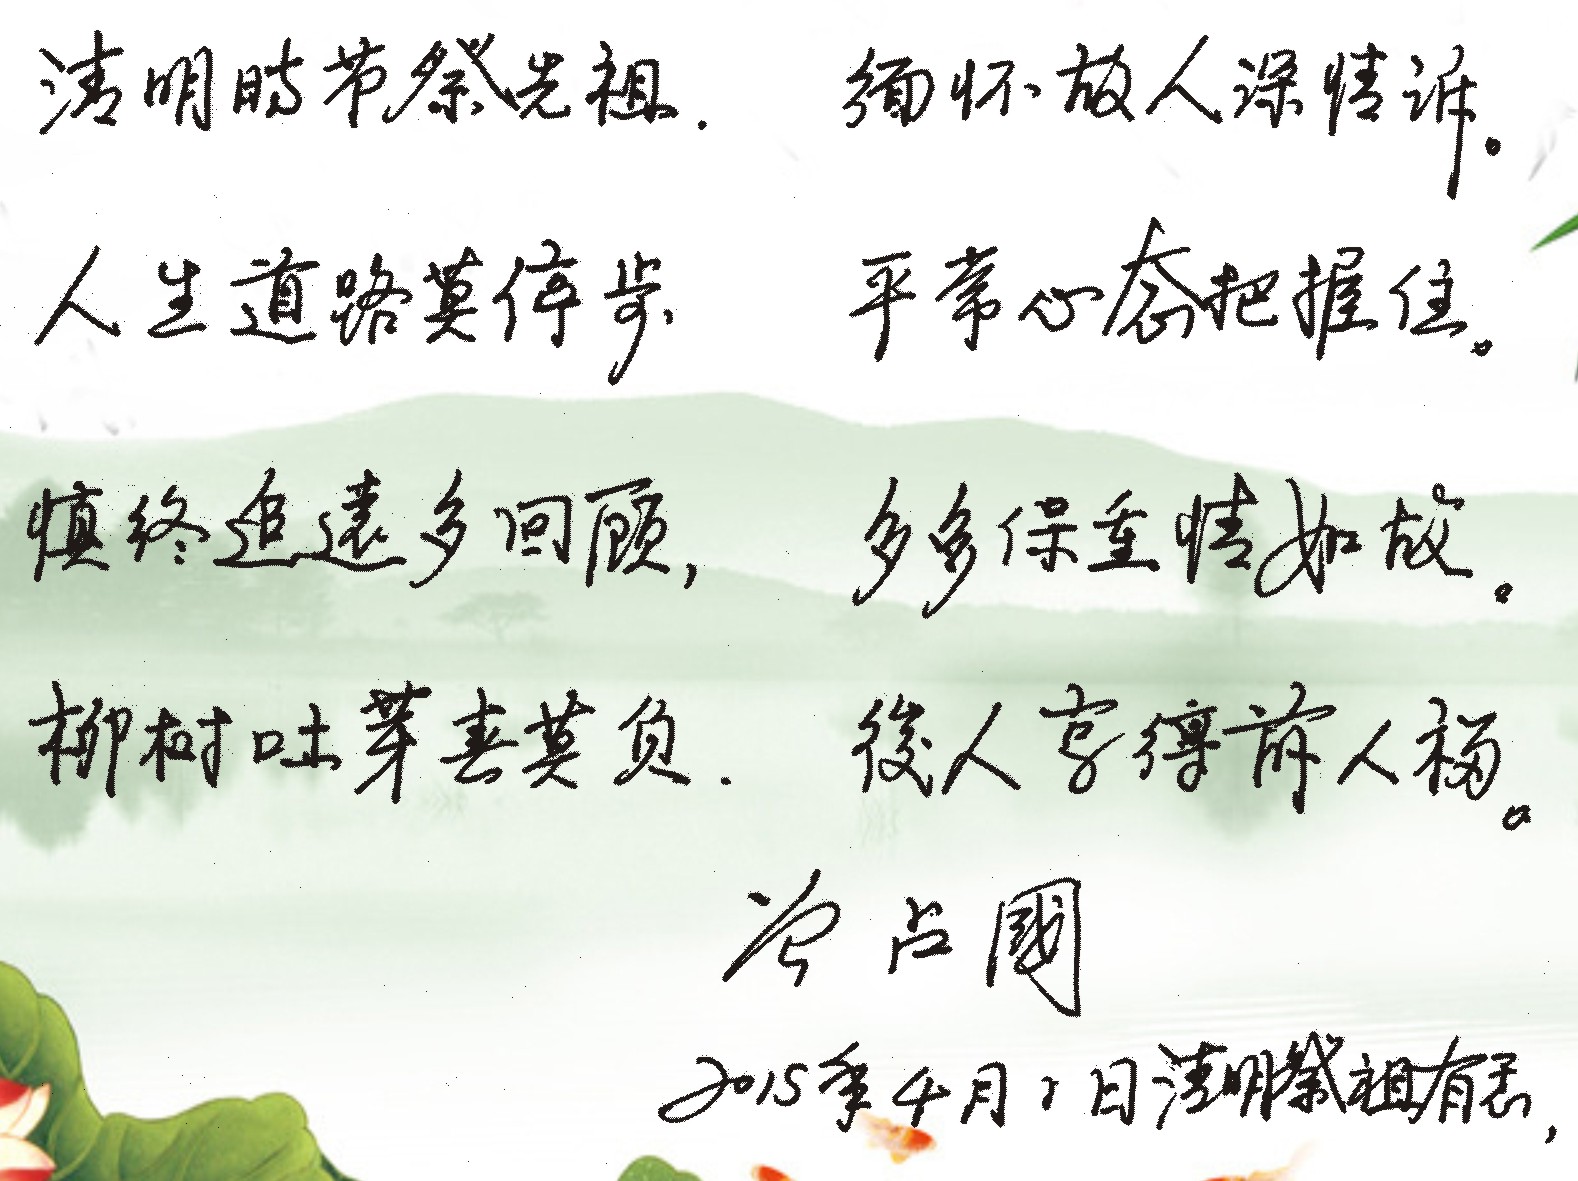 清明時节祭先祖. 缅怀故人深情诉。
人生道路莫停步. 平常心态把握住。
慎终追遠多回顾, 多多保重情如故。
柳树吐芽春莫负. 後人享得前人福。
曾占國
2015年4月1日清明祭祖有感,